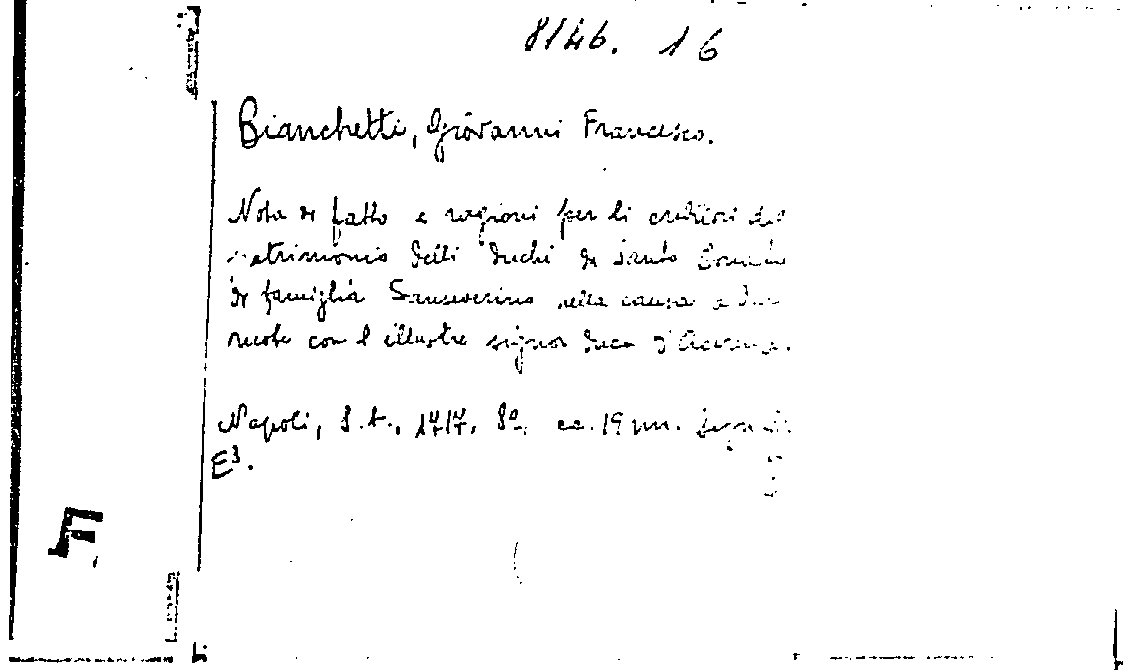 8146. 16
Bianchetti, Giovanni Francesco.
Nota di fatto e ragioni per li creditori del
patrimonio delli duchi di Santo Donato
di famiglia Sanseverino nella causa a
con l illustre signor duca d'Acerenza.
Napoli, S. t., 1717. 8º. cc. 19 nn.
E3.
F